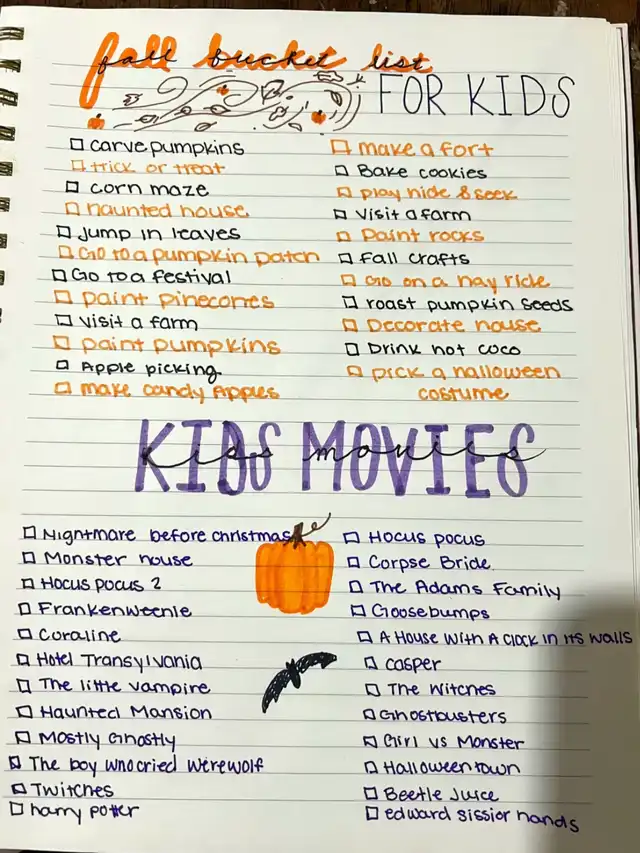 fall bucket list
FOR KIDS
carve pumpkins
trick or treat
corn maze
haunted house
Jump in leaves
Go to a pumpkin patch
Go to a festival
paint pinecones
visit a farm
paint pumpkins
Apple picking
make candy Apples
make a fort
Bake cookies
play hide & seek
visit a farm
Paint rocks
Fall crafts
Go on a hay ride
roast pumpkin seeds
Decorate house
Drink hot coco
pick a halloween
costume
KIDS MOVIES
kids movies
Nightmare before christmas
Monster house
Hocus pocus 2
Frankenweenie
Coraline
Hotel Transylvania
The little vampire
Haunted Mansion
Mostly Ghostly
The boy who cried werewolf
Twitches
harry potter
Hocus pocus
Corpse Bride
The Adams Family
Goosebumps
A House with A Clock in Its walls
casper
The witches
Ghostbusters
Girl vs Monster
Halloweentown
Beetle Juice
edward sissior hands